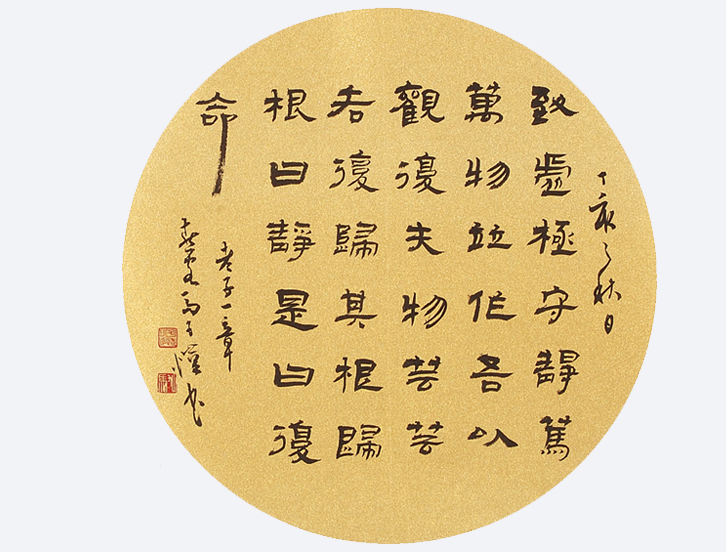 丁亥之秋日
致虛極守靜篤
萬物竝作吾以
觀復夫物芸芸
各復歸其根歸
根曰靜是曰復
命
老子一章
書